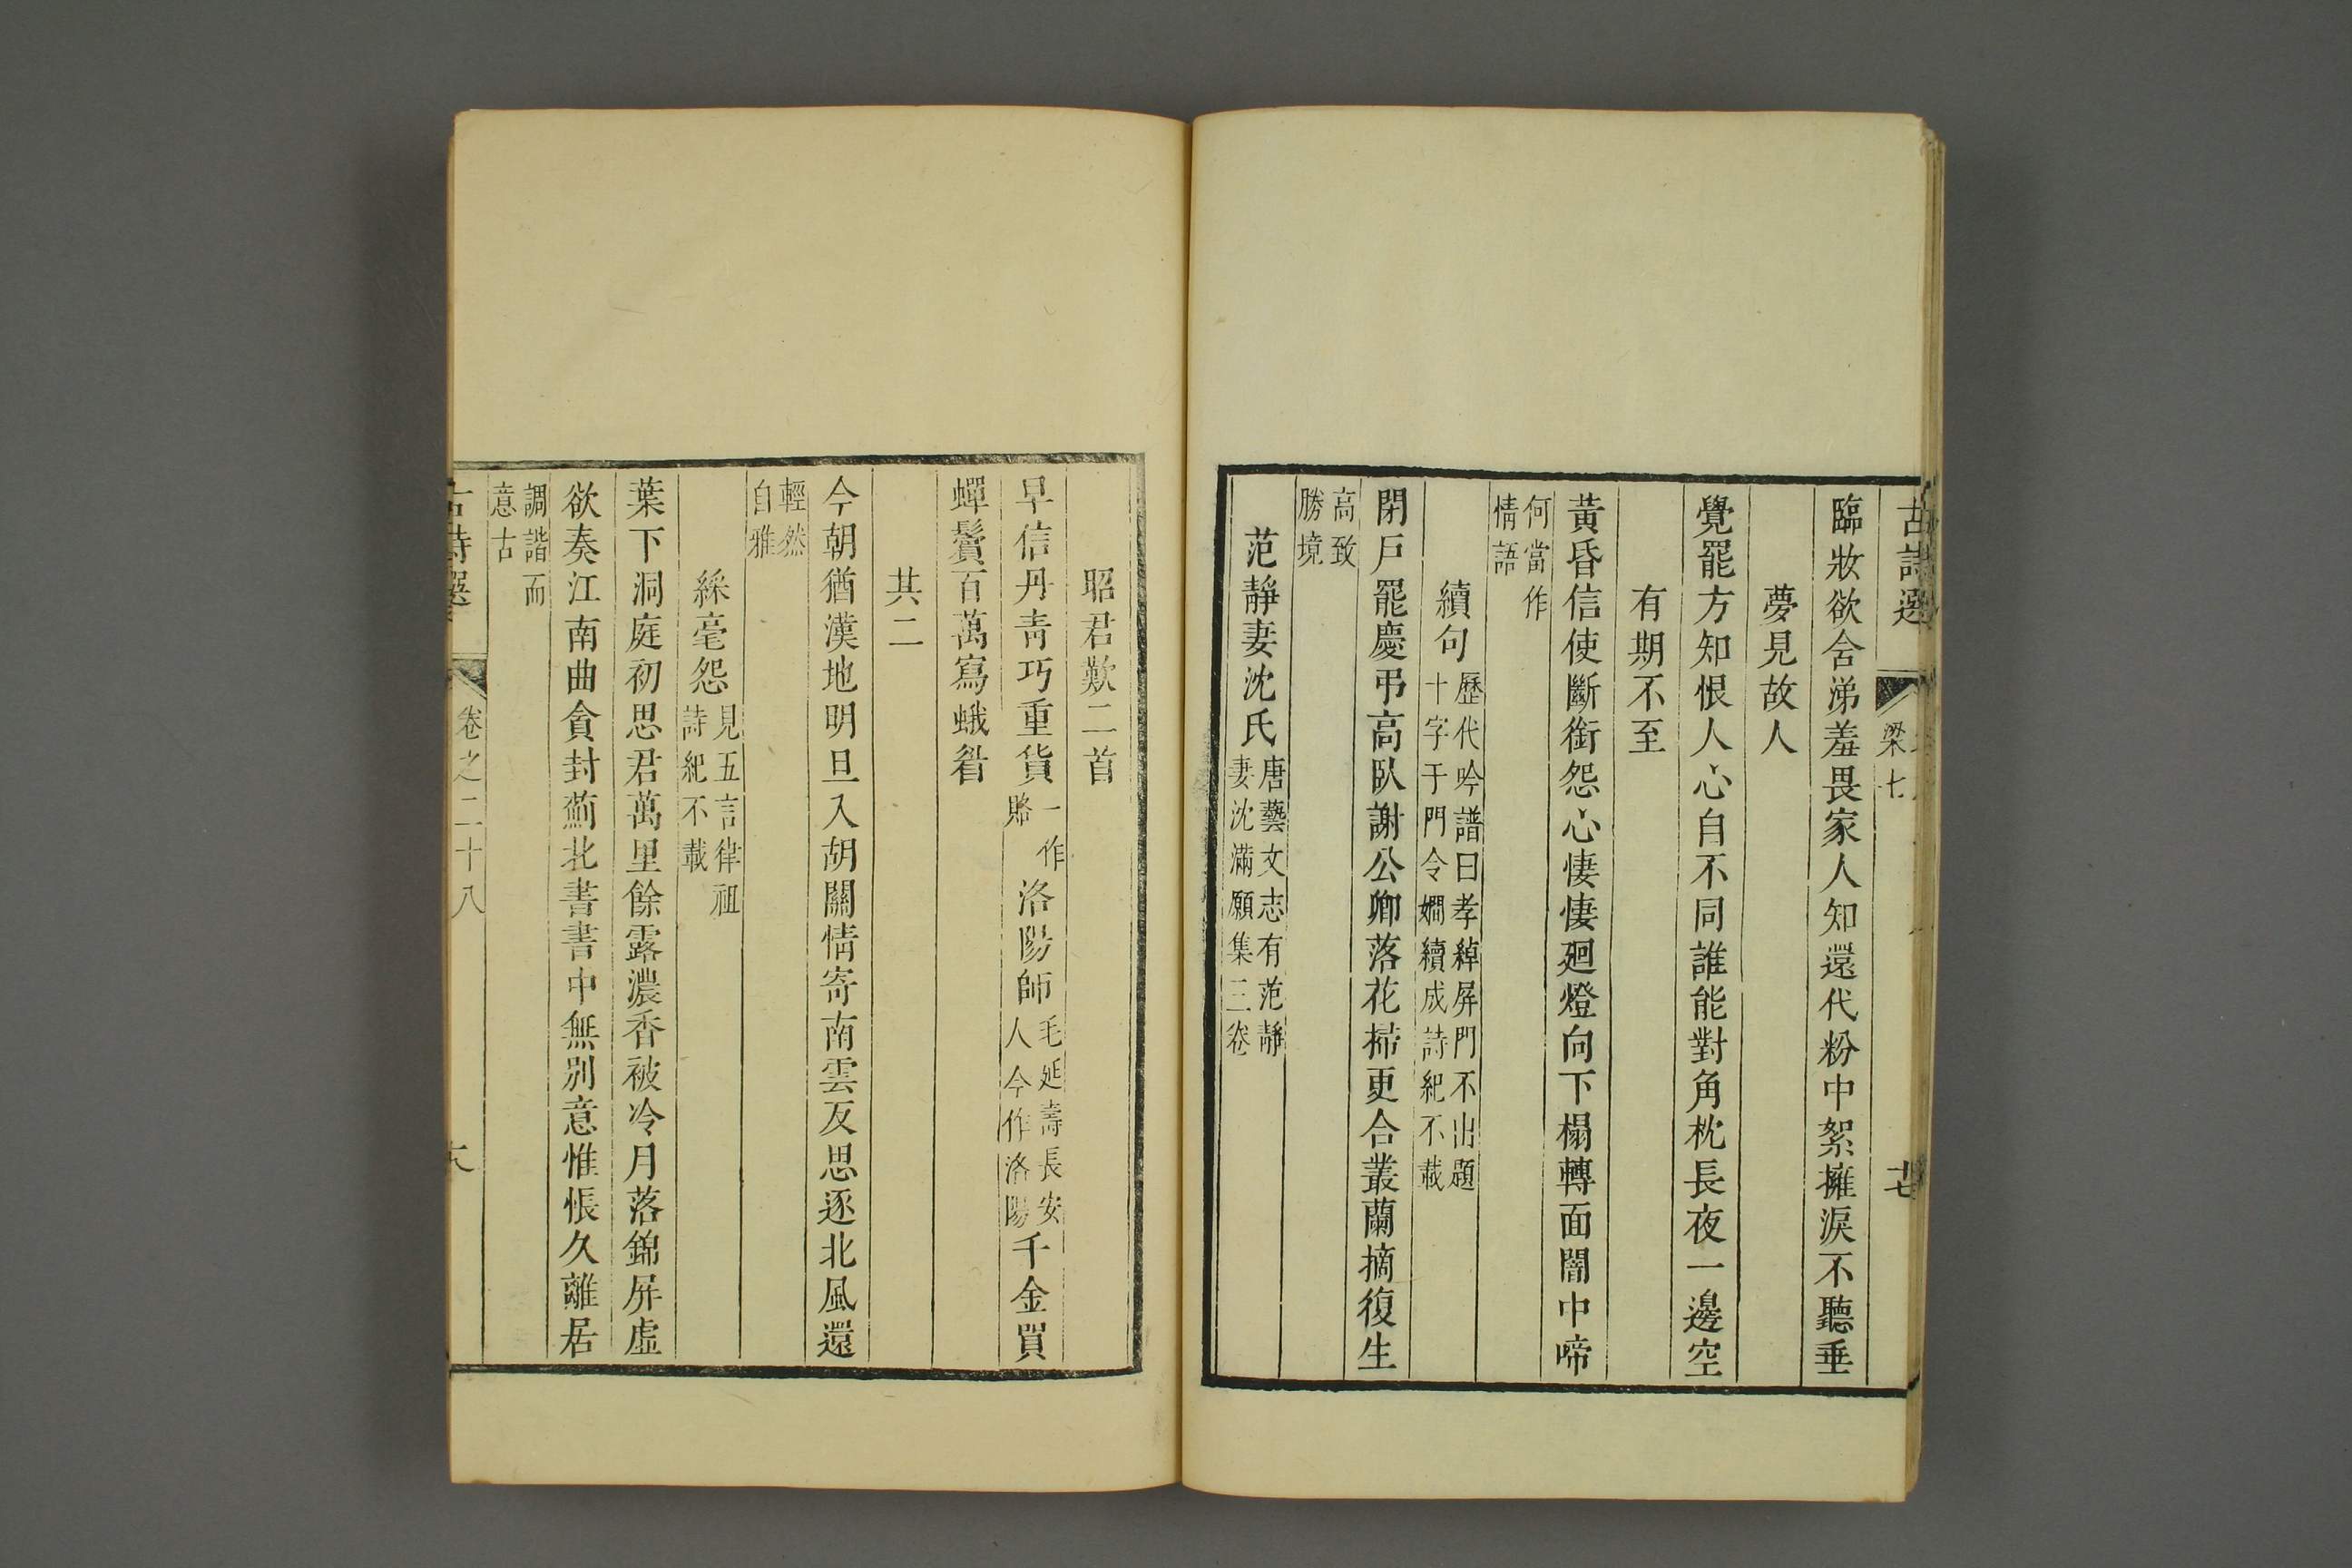 古詩選 梁七 十七
臨妝欲含涕羞畏家人知還代粉中絮擁淚不聽垂
夢見故人
覺罷方知恨人心自不同誰能對角枕長夜一邊空
有期不至
黃昏信使斷銜怨心悽悽廻燈向下榻轉面闇中啼
何當作
情語
續句
歷代吟譜曰孝綽屏門不出題
十字于門令嫺續成詩紀不載
閉戶罷慶弔高臥謝公卿落花掃更合叢蘭摘復生
高致
勝境
范靜妻沈氏
唐藝文志有范靜
妻沈滿願集三卷
昭君歎二首
早信丹青巧重貨一作賂洛陽師毛延壽長安人今作洛陽千金買
蟬鬢百萬寫蛾眉
其二
今朝猶漢地明旦入胡關情寄南雲反思逐北風還
輕然
自雅
綵毫怨
見五言律祖
詩紀不載
葉下洞庭初思君萬里餘露濃香被冷月落錦屏虛
欲奏江南曲貪封薊北書書中無別意惟悵久離居
調諧而
意古
古詩選 卷之二十八